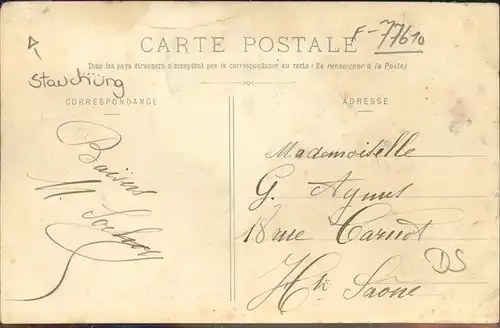 F-77610
CARTE POSTALE
Tous les pays étrangers n'acceptent pas la correspondance au recto (Se renseigner à la Poste)
Stauchüng
CORRESPONDANCE
ADRESSE
Baisers
M.
Mademoiselle
G. Agnus
18 rue Carnot
Hte Saône
DS